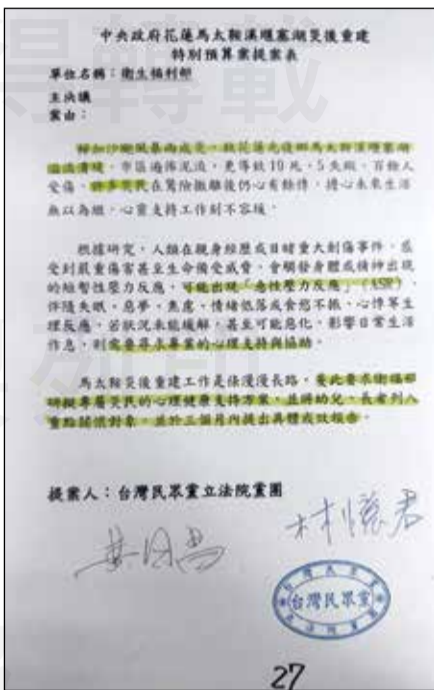 中央政府花蓮馬太鞍溪堰塞湖災後重建
特別預算案提案表
單位名稱：衛生福利部
主決議
案由：
樺加沙颱風暴雨成災，致花蓮光復鄉馬太鞍溪堰塞湖
溢流潰堤，市區遍佈泥流，更導致10死，5失蹤，百餘人
受傷，許多災民在驚險撤離後仍心有餘悸，擔心未來生活
無以為繼，心靈支持工作刻不容緩。
根據研究，人類在親身經歷或目睹重大創傷事件，感
受到嚴重傷害甚至生命備受威脅，會觸發身體或精神出現
的短暫性壓力反應，可能出現「急性壓力反應」(ASR)，
伴隨失眠、惡夢、焦慮、情緒低落或食慾不振、心悸等生
理反應，若狀況未能緩解，甚至可能惡化，影響日常生活
作息，則需要尋求專業的心理支持與協助。
馬太鞍災後重建工作是條漫漫長路，爰此要求衛福部
研擬專屬災民的心理健康支持方案，並將幼兒、長者列入
重點關懷對象，並於三個月內提出具體成效報告。
提案人：台灣民眾黨立法院黨團
林憶君
台灣民眾黨
27